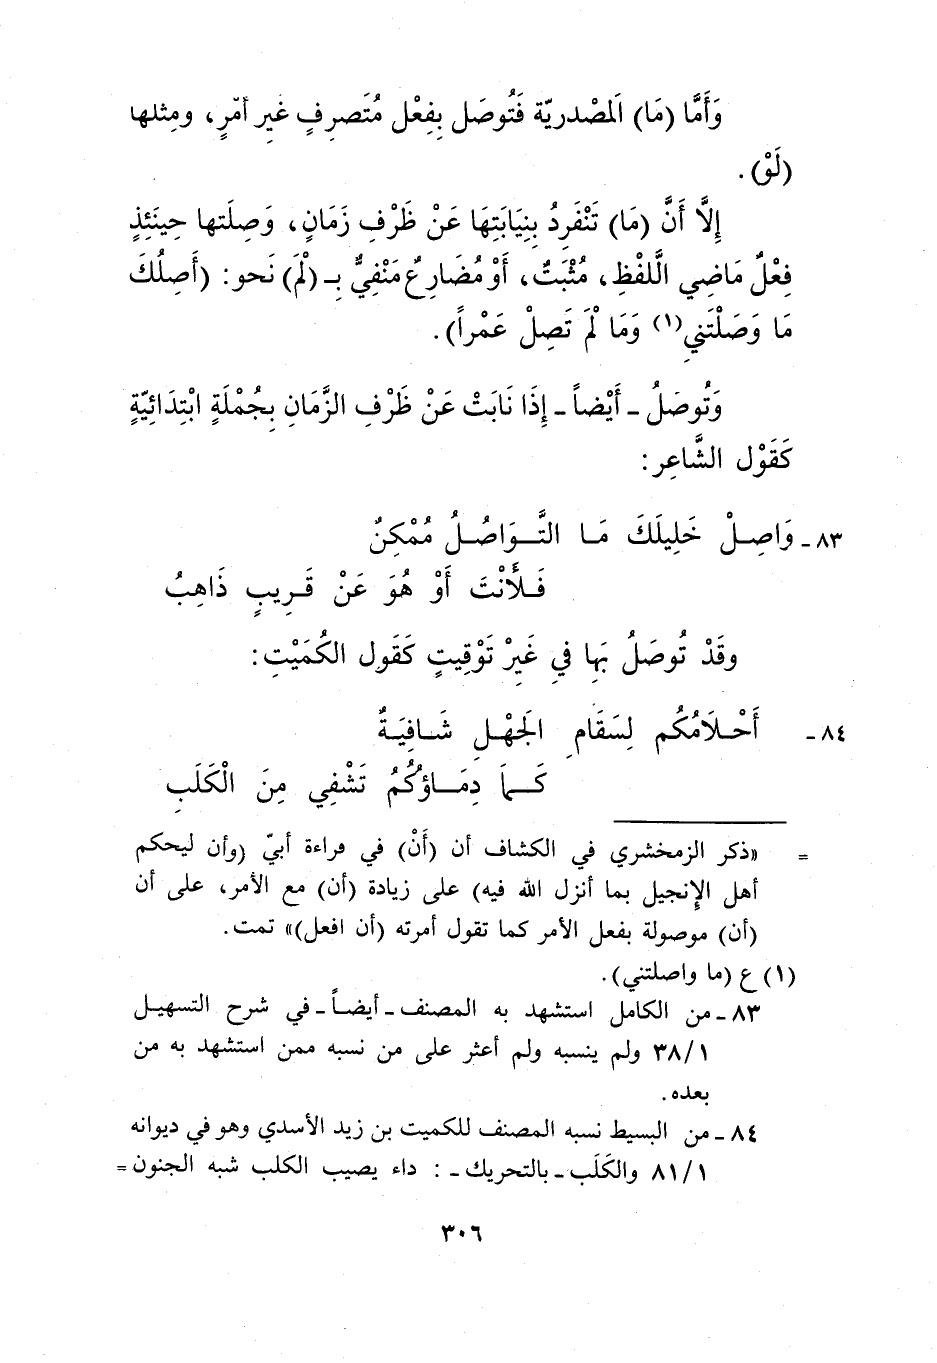 وَأَمَّا (مَا) المَصْدريّة فَتُوصَل بِفِعْل مُتَصرِفٍ غير أمْرٍ، ومِثلها
(لَوْ).
إِلاَّ أَنَّ (مَا) تَنْفَرِدُ بِنِيَابَتِهَا عَنْ ظَرْفِ زَمَانٍ، وَصِلَتها حِينَئِذٍ
فِعْلٌ مَاضِي الَّلفْظِ، مُثْبَتٌ، أَوْ مُضَارِعٌ مَنْفِيٌّ بِـ (لَمْ) نَحو: (أَصِلُكَ
مَا وَصَلْتَنِي(١) وَمَا لَمْ تَصِلْ عَمْراً).
وَتُوصَلُ ـ أَيْضاً ـ إِذَا نَابَتْ عَنْ ظَرْفِ الزَّمَانِ بِجُمْلَةٍ ابْتِدَائِيّةٍ
كَقَوْل الشَّاعِر:
٨٣ ـ وَاصِلْ خَلِيلَكَ مَا التَّوَاصُلُ مُمْكِنٌ
فَلأَنْتَ أَوْ هُوَ عَنْ قَرِيبٍ ذَاهِبُ
وقَدْ تُوصَلُ بَهَا فِي غَيِرْ تَوْقِيتٍ كَقَولِ الكُمَيْتِ:
٨٤ ـ أَحْلاَمُكُم لِسَقَامِ الجَهْلِ شَافِيَةٌ
كَمَا دِمَاؤُكُمُ تَشْفِي مِنَ الْكَلَبِ
= «ذكر الزمخشري في الكشاف أن (أَنْ) في قراءة أبيّ (وأن ليحكم
أهل الإنجيل بما أنزل الله فيه) على زيادة (أن) مع الأمر، على أن
(أن) موصولة بفعل الأمر كما تقول أمرته (أن افعل)» تمت.
(١) ع (ما واصلتني).
٨٣ ـ من الكامل استشهد به المصنف ـ أيضاً ـ في شرح التسهيل
٣٨/١ ولم ينسبه ولم أعثر على من نسبه ممن استشهد به من
بعده.
٨٤ ـ من البسيط نسبه المصنف للكميت بن زيد الأسدي وهو في ديوانه
٨١/١ والكَلَب ـ بالتحريك ـ : داء يصيب الكلب شبه الجنون =
٣٠٦